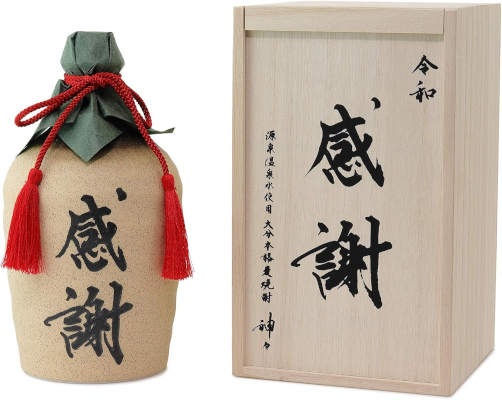 感謝
令和
感謝
源泉温泉水使用 大分本格麦焼酎 神々